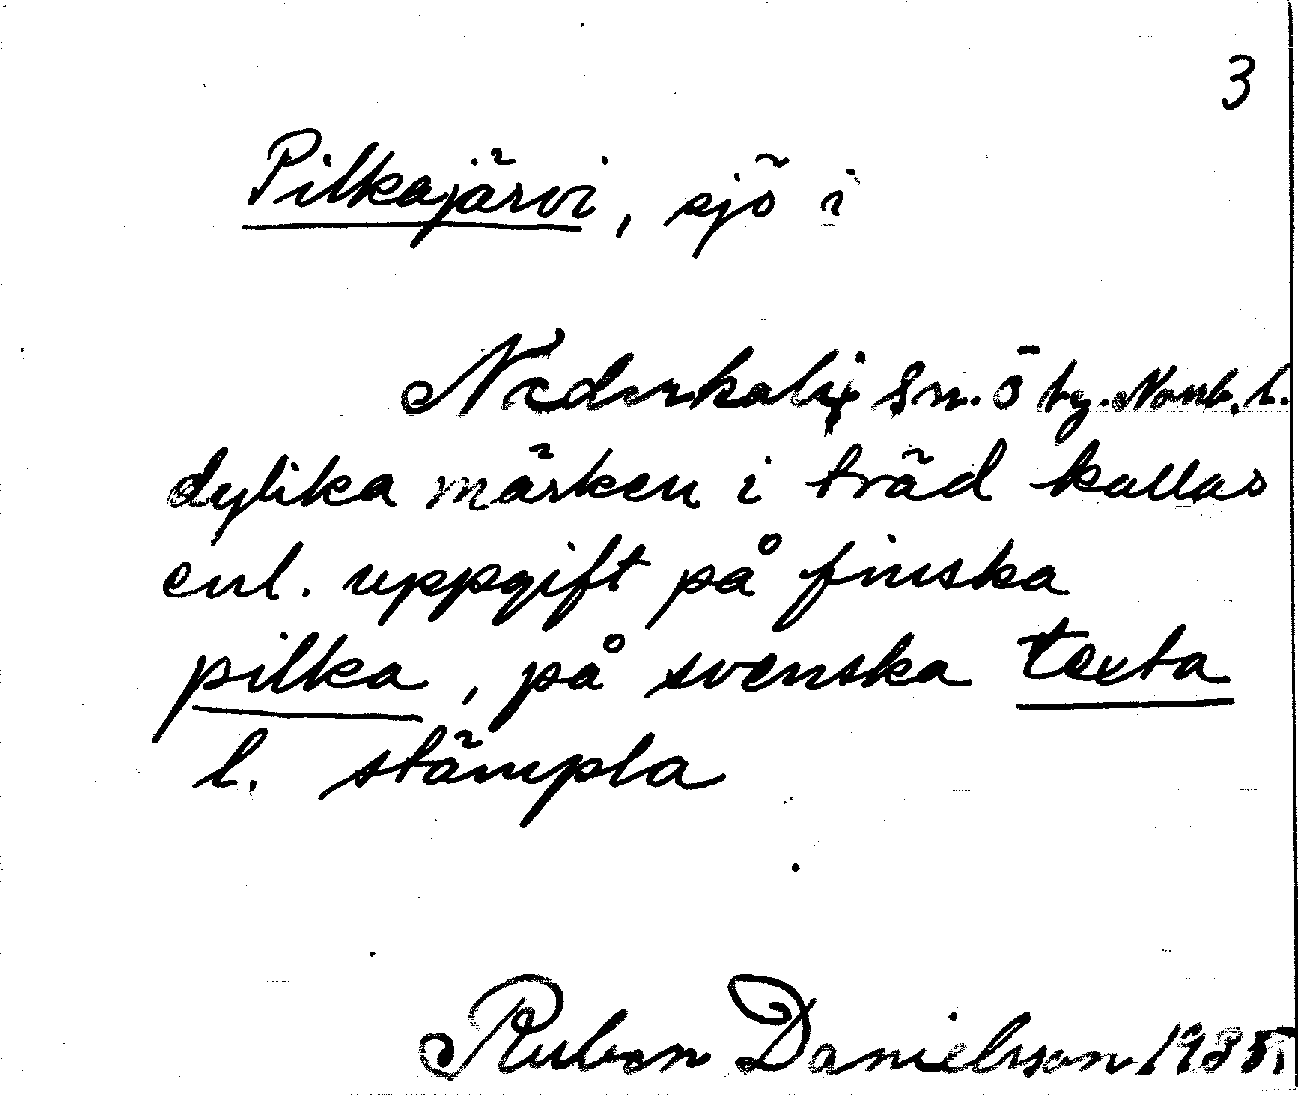 3
Pilkajärvi, sjö i
Nederkalix sn. Ö by. Norrb. l.
dylika märken i träd kallas
enl. uppgift på finska
pilka, på svenska texta
l. stämpla
Ruben Danielsson 1935.